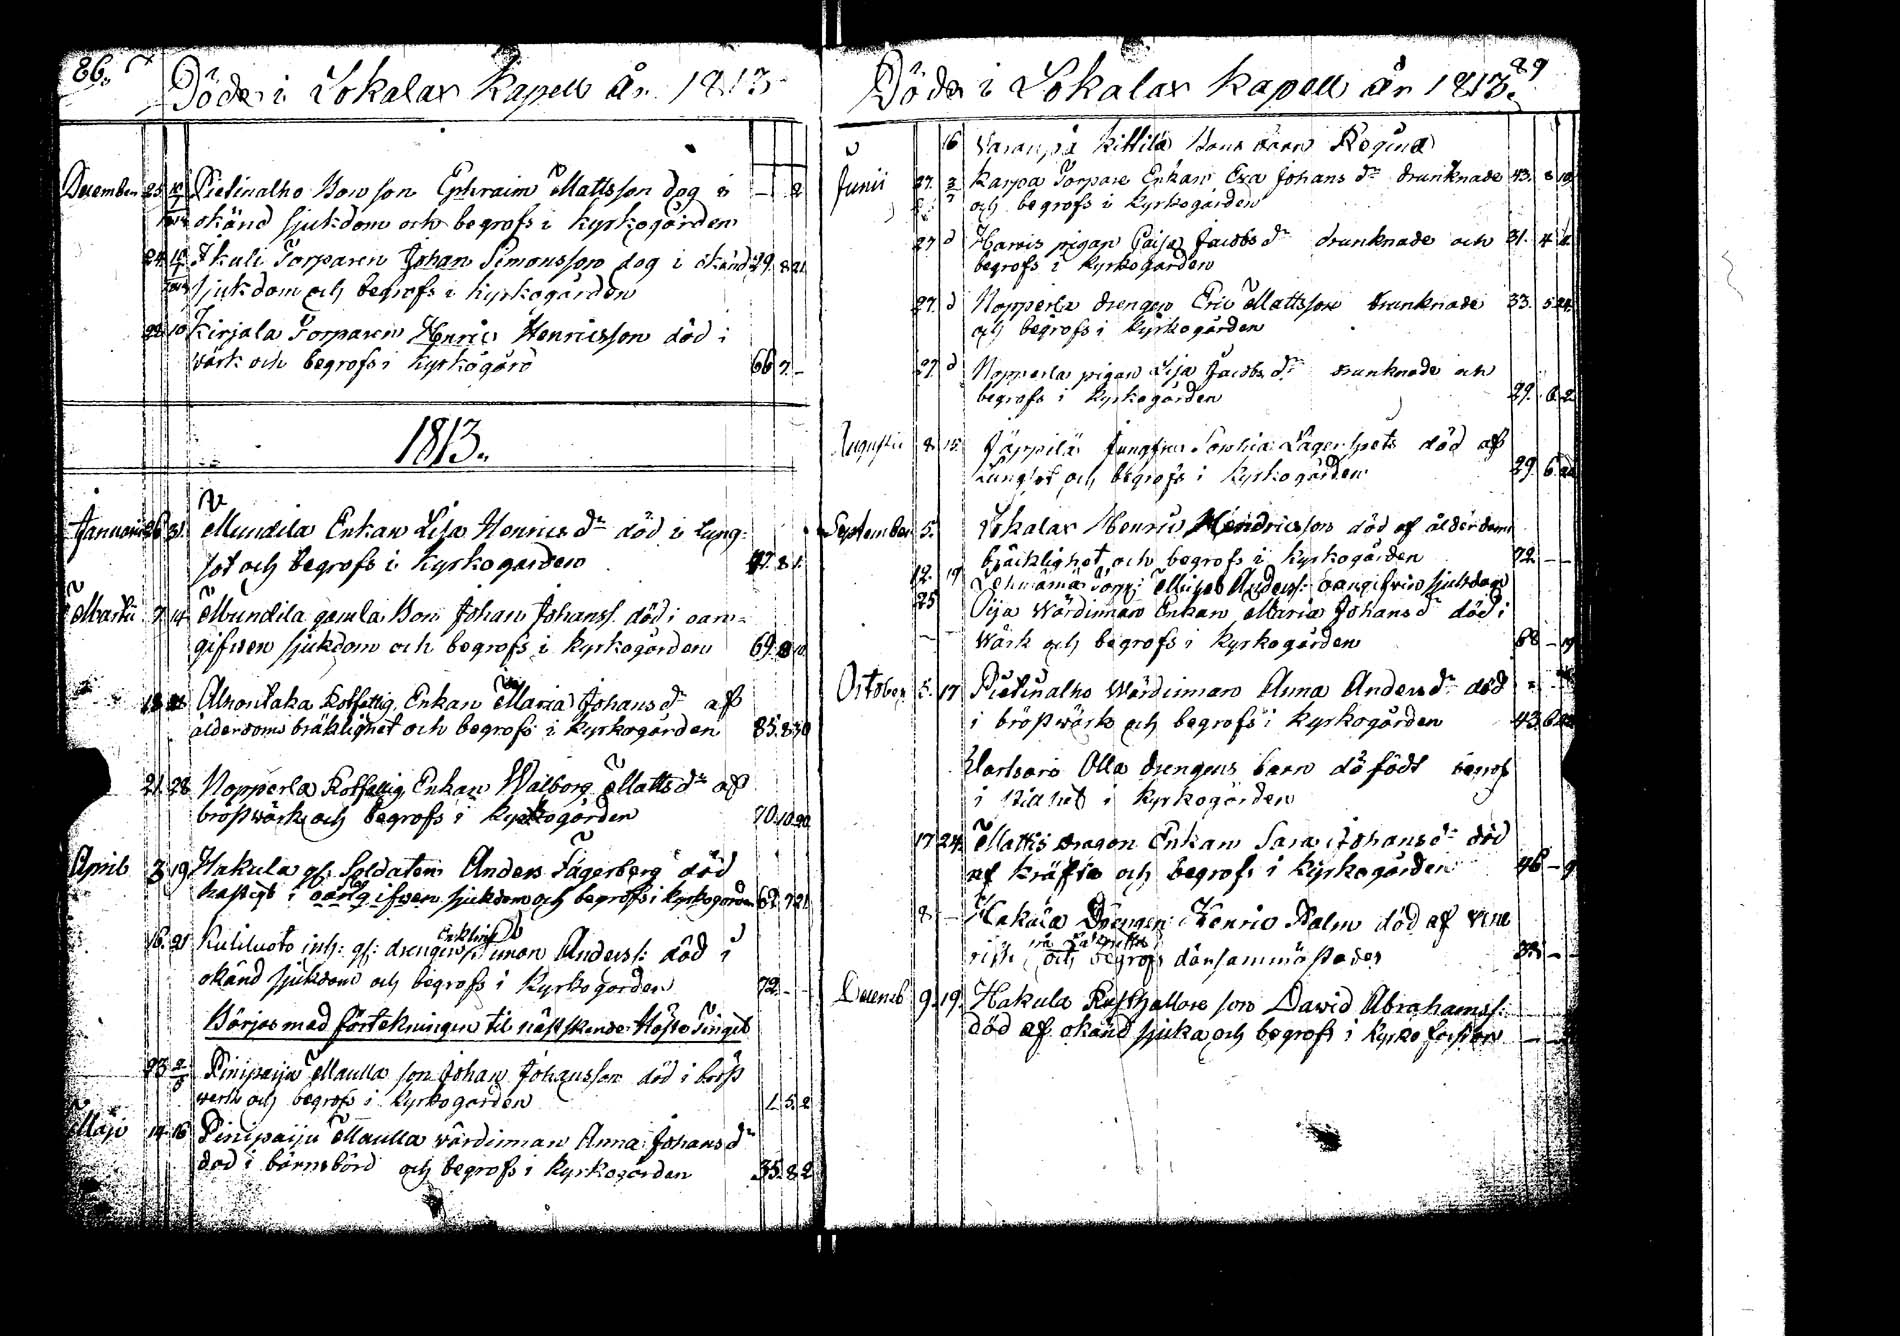 86.
Döde i Lokalax Kapell År 1813
December 25 Pietinalho Bon son Ephraim Mattsson dog i — 2
okänd sjukdom och begrofs i kyrkogården
24 Torparen Johan Simonsson dog i okänd 29. 8 21
sjukdom och begrofs i kyrkogården
28 10 Kirjala Torparen Henric Henricsson död i
wärk och begrofs i kyrkogård 66 7 –
1813.
Januarii 26 31. Mundila Enkan Lisa Henrics dr död i Lung-
sot och begrofs i kyrkogården 47. 8 1.
Martii 7 14 Mundila gamla Bon Johan Johanss. död i oan-
gifwen sjukdom och begrofs i kyrkogården 69. 8 10
Rotfattig Enkan Maria Johans dr af
ålderdoms bräklighet och begrofs i kyrkogården 85. 8 30
21. 28 Nopperla Rotfattig Enkan Walborg Matts dr af
bröstwärk och begrofs i kyrkogården 70. 10. 20
April 3 19 Hakula gl: Soldaten Anders Fägerberg död
hastigt i oangifven sjukdom och begrofs i kyrkogården 62. 7 21
Enkling
16. 21 Kuliluoto inh: gl: drengen Simon Anderss: död i
okänd sjukdom och begrofs i kyrkogården 72. – –
Börjas med förtekningen til nästskende Höste Tinget
23 2/5 Pinipaiju Maulla son Johan Johansson död i bröst
werk och begrofs i kyrkogården 1. 5. 2
Maji 14 16 Pinipaiju Maulla wärdinnan Anna Johans dr
död i barnsbörd och begrofs i kyrkogården 35. 8 2
89
Döde i Lokalax Kapell År 1813.
16 Kittilä Bons barn Regina
Junii 27. Karjoa Torpare Enkan Eva Johans dr drunknade 43. 8 19
och begrofs i kyrkogården
27 d Harvis pigan Caisa Jacobs dr drunknade och 31. 4
begrofs i kyrkogården
27. d Nopperla drengen Eric Mattsson drunknade 33. 5 24.
och begrofs i kyrkogården
27. d Nopperla pigan Lisa Jacobs dr drunknade och
begrofs i kyrkogården 29. 6 2
Augusti 8. 15. Järppilä Jungfru Sophia Lagerspets död af
Lungsot och begrofs i kyrkogården 29. 6
September 5. Lokalax Henric Hendricsson död af ålderdoms
bräcklighet och begrofs i kyrkogården 72 – –
12. 19 Anderss: oangifwin sjukdom
25 Wärdinnan Enkan Maria Johans dr död i
wärk och begrofs i kyrkogården 68 – 19
October 5. 17 Pietinalho Wärdinnan Anna Anders dr död
i bröstwärk och begrofs i kyrkogården 43. 6
Olla drengens barn dödfödt begrof
i kyrkogården
17 24. Mattis dragon Enkan Sara Johans dr död
af kräfta och begrofs i kyrkogården 46 – 9
8. – Hakula Drengen Henric Palm död af vene
risk och begrofs därsammastädes – –
Decemb 9. 19. Hakula Rusthållare son Dawid Abrahamss:
död af okänd sjuka och begrofs i kyrko –